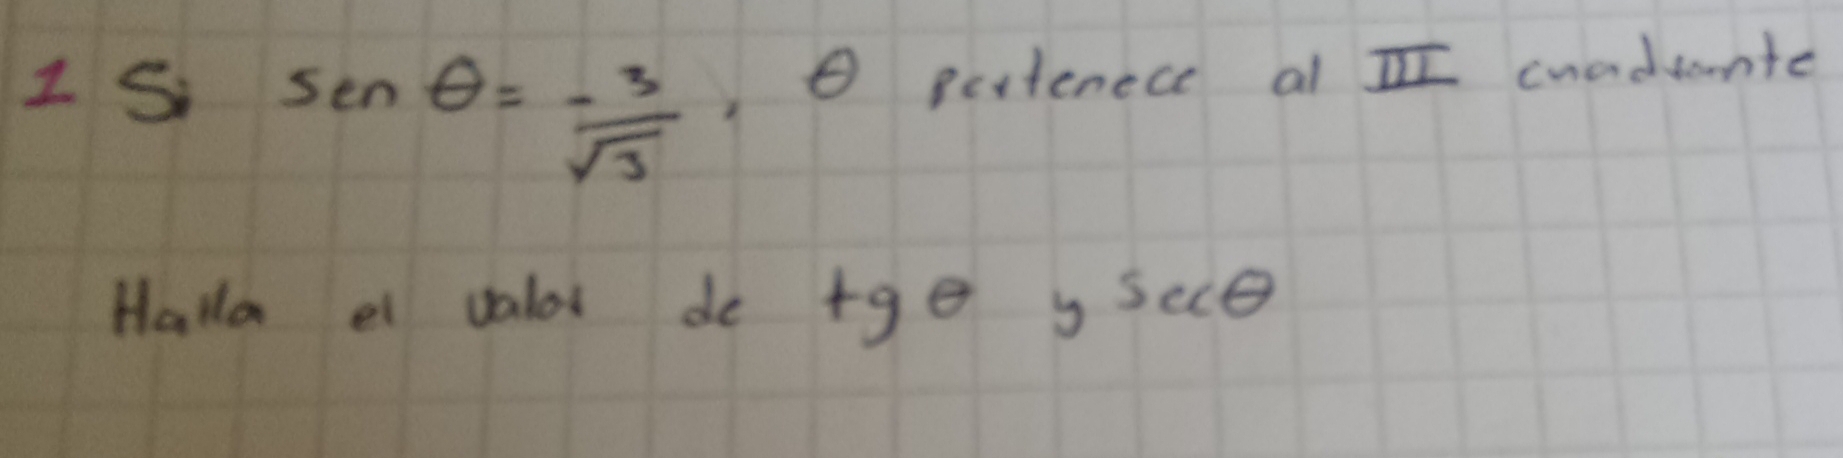 1 Si sen θ = -3/√3, θ pertenece al III cuadrante
Halla el valor de tg θ y sec θ